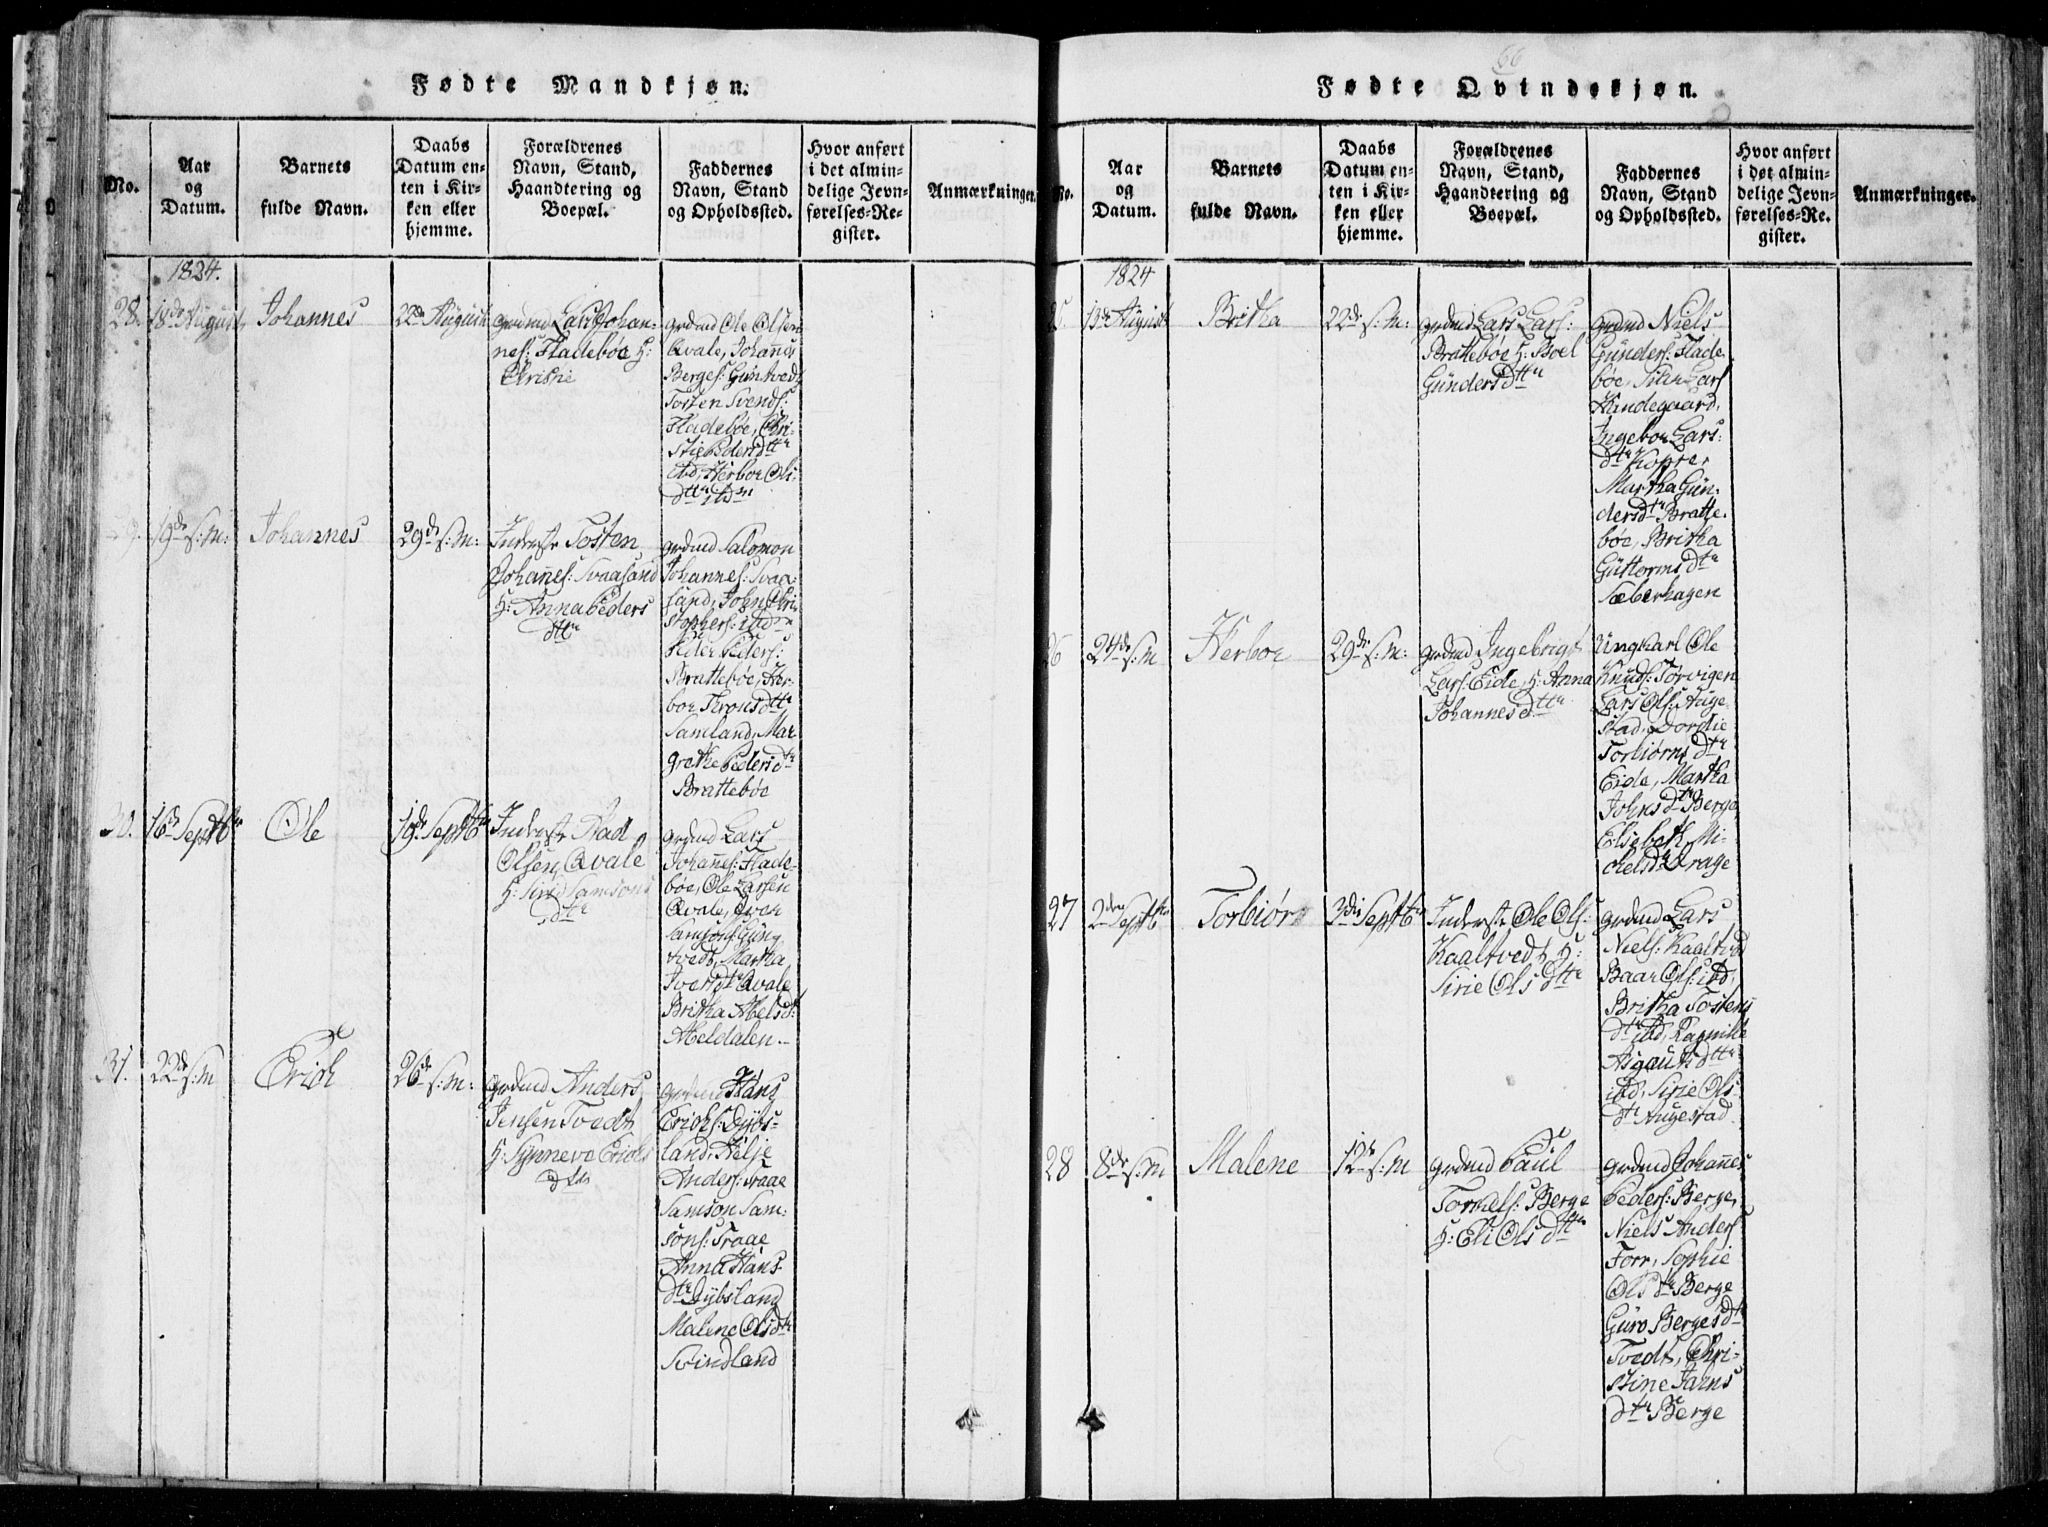 Fødte Mandkjøn.
No.
Aar
og
Datum.
Barnets
fulde Navn.
Daabs
Datum en-
ten i Kir-
ken eller
hjemme.
Forældrenes
Navn, Stand,
Haandtering og
Boepæl.
Faddernes
Navn, Stand
og Opholdssted.
Hvor anført
i det almin-
delige Jevn-
førelses-Re-
gister.
Anmærkninger.
1824.
28.
18de August
Johannes
22de August
grdmd Lars Johan-
nes: Fladebøe H:
Christie
grdmd Ole Olsen
Qvale, Johannes
Berges: Guntvedt
Tosten Svends:
Fladebøe, Chri-
stie Pedersdttr
ibd, Herbor Ols-
dttr ibdm
29.
19de s:m:
Johannes
29de s:m:
Inderste Tosten
Johanes: Svaasand
H: Anna Peders
dttr
grdmd Salomon
Johannes: Svaa-
sand, John Chri-
stophers: ibdm
Peder Peders:
Brattebøe, Her-
bor Thronsdttr
Samland, Mar
grethe Pedersdtr
Brattebøe
30.
16de Septbr
Ole
19de Septbr
Inderste Aad
Olsen Qvale
H: Siri Samsons
dttr
grdmd Lars
Johanes: Flade-
bøe, Ole Larsen
Qvale, Iver
Samsons: Gun-
tvedt, Martha
Iversdtr Qvale
Britha Abelsdr:
Meldalen
31.
22de s:m
Erich
26de s:m:
grdmd Anders
Jensen Tvedt
H: Synneva Erichs
dtr
grdmd Hans
Erichs: Dybs-
land, Helje
Anders: Traae
Samson Sam-
sons: Traae
Anna Hans-
dtr Dybsland
Malene Olsdtr
Svindland
66
Fødte Qvindekjøn.
No.
Aar
og
Datum.
Barnets
fulde Navn.
Daabs
Datum en-
ten i Kir-
ken eller
hjemme.
Forældrenes
Navn, Stand,
Haandtering og
Boepæl.
Faddernes
Navn, Stand
og Opholdssted.
Hvor anført
i det almin-
delige Jevn-
førelses-Re-
gister.
Anmærkninger.
1824
25.
19de August
Britha
22de s:m:
grdmd Lars Lars:
Brattebøe H: Boel
Gundersdttr
grdmd Niels
Gunders: Flade
bøe, Lars
Handegaard,
Ingebor Lars:
dtr Kopre,
Martha Gun-
dersdtr Bratte-
bøe, Britha
Guttormsdtr
Sæberhagen
26
24de s:m
Herbor
29de s:m:
grdmd Ingebrigt
Lars: Eide, H: Anna
Johannesdttr
Ungkarl Ole
Knuds: Torvigen
Lars Ols: Auge-
stad, Dorthe
Torbiørnsdtr
Eide, Martha
Johnsdtr Berge,
Elsebeth Mi-
chelsdtr Drage
27
2den Septbr
Torbiør
3die Septbr
Inderste Ole Ols:
Kaaltvedt H:
Sirie Olsdttr
grdmd Lars
Niels: Kaaltvedt
Baar Ols: ibd,
Britha Tostens
dtr ibd, Ragnilde
Asgautsdttr
ibd, Sirie Ols-
dtr Augestad
28
8de s:m
Malene
12te s:m
grdmd Paul
Tormels: Berge
H: Eli Olsdttr
grdmd Johanes
Peders: Berge,
Niels Anders:
Torr, Sophie
Olsdtr Berge
Guro Bergesdtr
Tvedt, Chri-
stine Jahns
dtr Berge